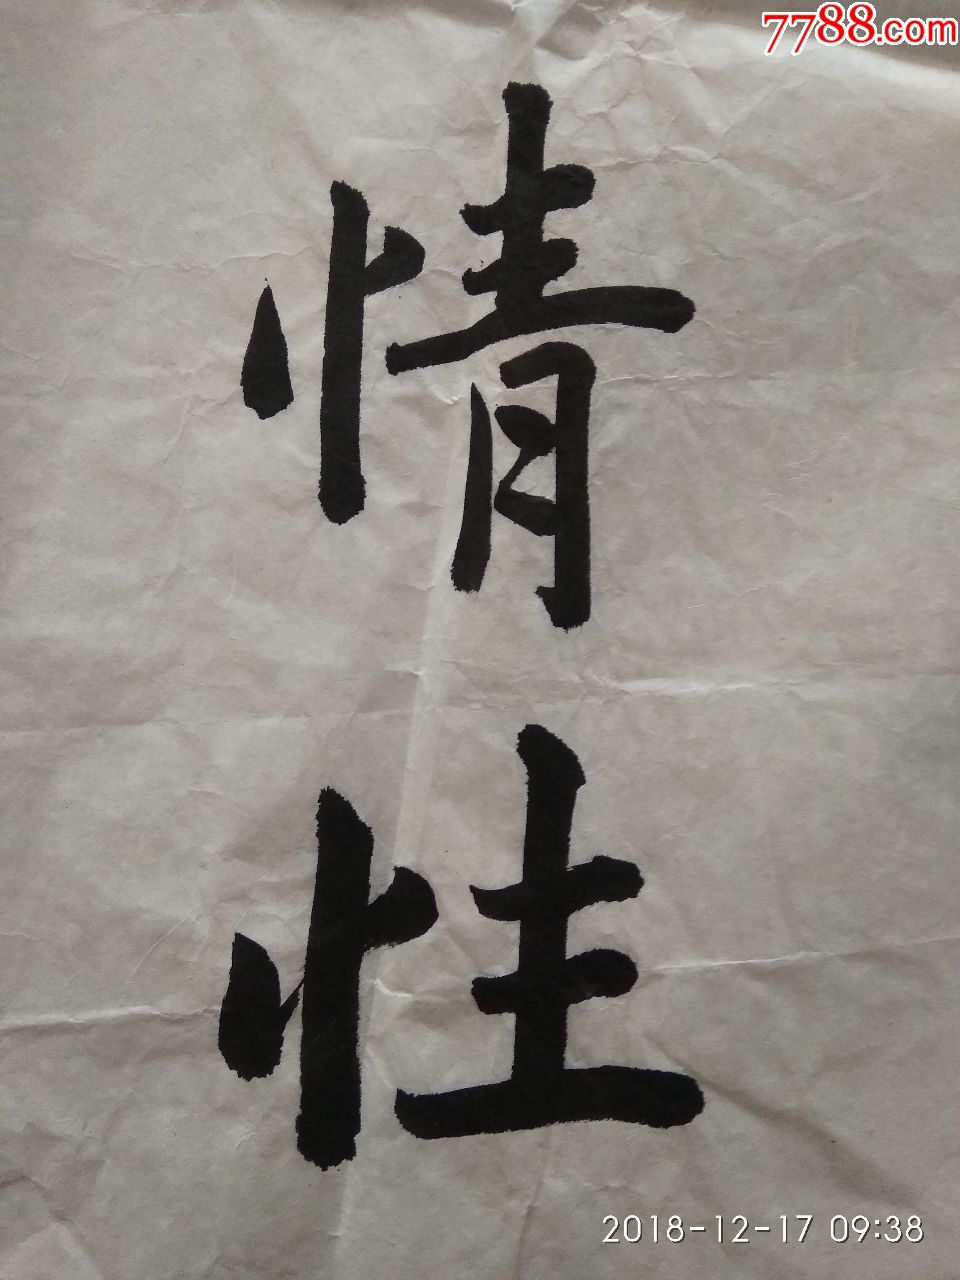 7788.com
情
性
2018-12-17 09:38